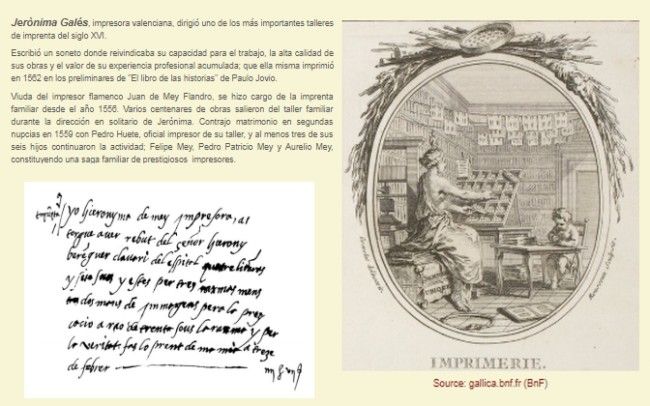 Jerònima Galés, impresora valenciana, dirigió uno de los más importantes talleres
de imprenta del siglo XVI.
Escribió un soneto donde reivindicaba su capacidad para el trabajo, la alta calidad de
sus obras y el valor de su experiencia profesional acumulada; que ella misma imprimió
en 1562 en los preliminares de "El libro de las historias" de Paulo Jovio.
Viuda del impresor flamenco Juan de Mey Flandro, se hizo cargo de la imprenta
familiar desde el año 1556. Varios centenares de obras salieron del taller familiar
durante la dirección en solitario de Jerónima. Contrajo matrimonio en segundas
nupcias en 1559 con Pedro Huete, oficial impresor de su taller, y al menos tres de sus
seis hijos continuaron la actividad; Felipe Mey, Pedro Patricio Mey y Aurelio Mey,
constituyendo una saga familiar de prestigiosos impresores.
yo hieronyma de mey impresora, at
torgue aver rebut del señor hierony
del espital
y per tres
mans
per lo preu
a rao de trenta sous la rayma y per
la veritat fas lo present de ma mia a treze
de febrer
IMPRIMERIE.
Source: gallica.bnf.fr (BnF)